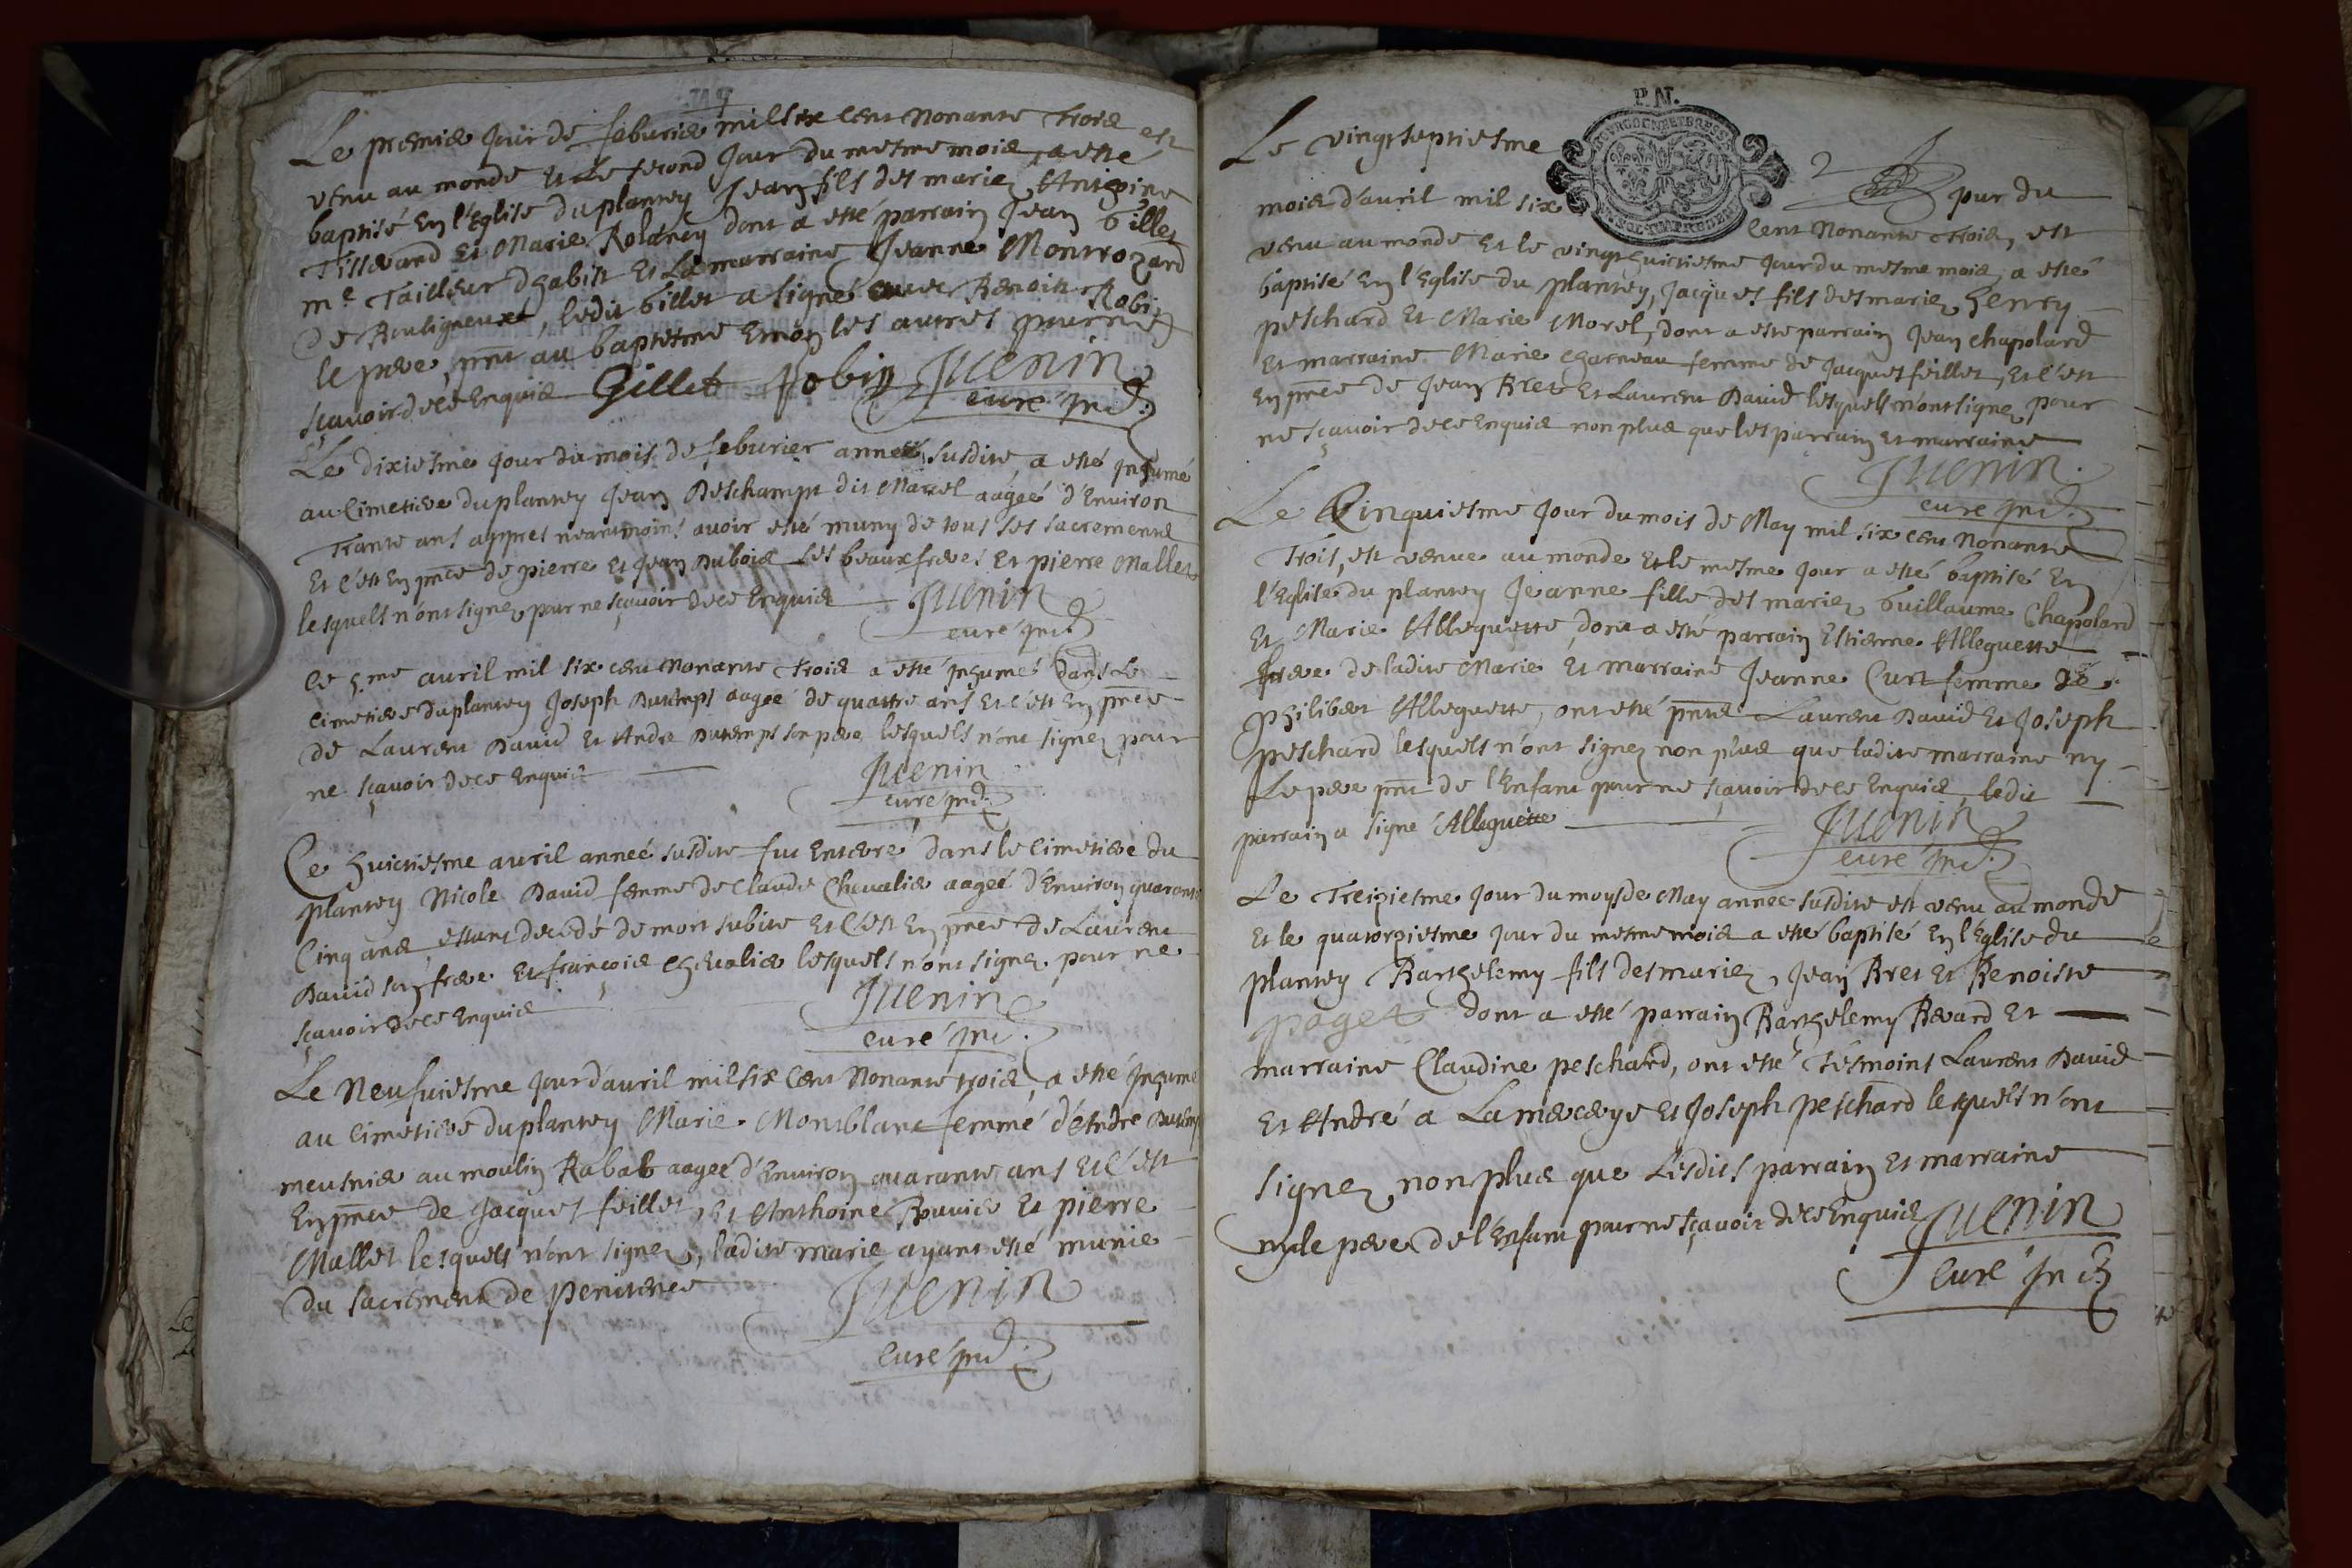 Le premier jour de feburier mil six cent nonante trois est
venu au monde et Le second jour du mesme mois a esté
baptisé en l'Eglise du plantey Jean fils des mariez Antoine
Tillerand et Marie Rolancy dont a esté parrain Jean Gillet
me Tailleur d'habist et La marraine Jeanne Montrozard
de Bouligneux, ledit Gillet a signé avec Benoist Robin
le pere pnt au baptesme Emoy les autres pour ne
sçavoir de ce Enquis Gillet Robin Juenin
curé ind.
Le dixiesme jour du mois de feburier anneé susdite, a esté inhumé
au Cimetiere du plantey Jean Deschamps dit Marel aageé d'Environ
Trante ans appres neantmoins avoir esté muny de tous ses sacrements
Et c'est En pnce de pierre et Jean Dubois ses beaux freres Et pierre Mallet
lesquels n'ont signez pour ne sçavoir de ce Enquis Juenin
curé ind.
Ce 5.me avril mil six cent nonante trois a esté inhumé dans Le
cimetiere du plantey Joseph Dutemps aageé de quattre ans et c'est En pnce
de Laurent David Et Andre Dutemps son pere lesquels n'ont signez pour
ne sçavoir de ce Enquis Juenin
curé ind.
Ce huictiesme avril anneé susdite fut Enterré dans le cimetiere du
plantey Nicole David femme de Claude Chevalier aageé d'Environ quarante
Cinq ans, estant decedé de mort subite Et c'est En pnce de Laurent
David son frere Et françois Chevalier lesquels n'ont signez pour ne
sçavoir de ce Enquis Juenin
curé ind.
Le Neufuiesme jour d'avril mil six cent Nonante trois, a esté inhumé
au cimetiere du plantey Marie Montblanc femme d'Andre Dutemps
meusnier au moulin Rabat aageé d'Environ quarante ans Et c'est
En pnce de Jacques feillet, Et Anthoine Bouvier Et pierre
Mallet lesquels n'ont signez, ladite marie ayant esté munie
Du sacrement de penitence Juenin
Curé ind.
P. N.
BOURGOGNE ET BRESSE
Le vingt septiesme jour du
mois d'avril mil six cent Nonante Trois, est
venu au monde Et le vingt huictiesme jour du mesme mois, a esté
baptisé En l'Eglise du plantey, Jacques fils des mariez Henry
peschard Et Marie Morel, dont a esté parrain Jean Chapolard
Et marraine Marie Charneau femme de Jacques feillet, Et c'est
En pnce de Jean Bret Et Laurent David lesquels n'ont signez pour
ne sçavoir de ce Enquis non plus que les parrain Et marraine
Juenin
curé ind.
Le Cinquiesme jour du mois de May mil six cent Nonante
Trois, est venue au monde Et le mesme jour a esté baptisé En
l'Eglise du plantey Jeanne fille des mariez Guillaume Chapolard
Et Marie Alleguette, dont a esté parrain Estienne Alleguette
frere de ladite Marie Et marraine Jeanne Curt femme de
Philibert Alleguette, ont esté pnts Laurent David Et Joseph
peschard lesquels n'ont signez non plus que ladite marraine ny
Le pere pnt de l'Enfant pour ne sçavoir de ce Enquis, ledit
parrain a signé Alleguette Juenin
curé ind.
Le Treiziesme jour du moys de May anneé susdite est venu au monde
Et le quatorziesme jour du mesme mois a esté baptisé En l'Eglise du
plantey Barthelemy fils des mariez Jean Bret Et Benoiste
paget dont a esté parrain Barthelemy Berard Et
marraine Claudine peschard, ont esté Tesmoins Laurent David
Et André a Lamercerye Et Joseph peschard lesquels n'ont
signez non plus que Lesdits parrain Et marraine
ny le pere de l'Enfant pour ne sçavoir de ce Enquis Juenin
Curé ind